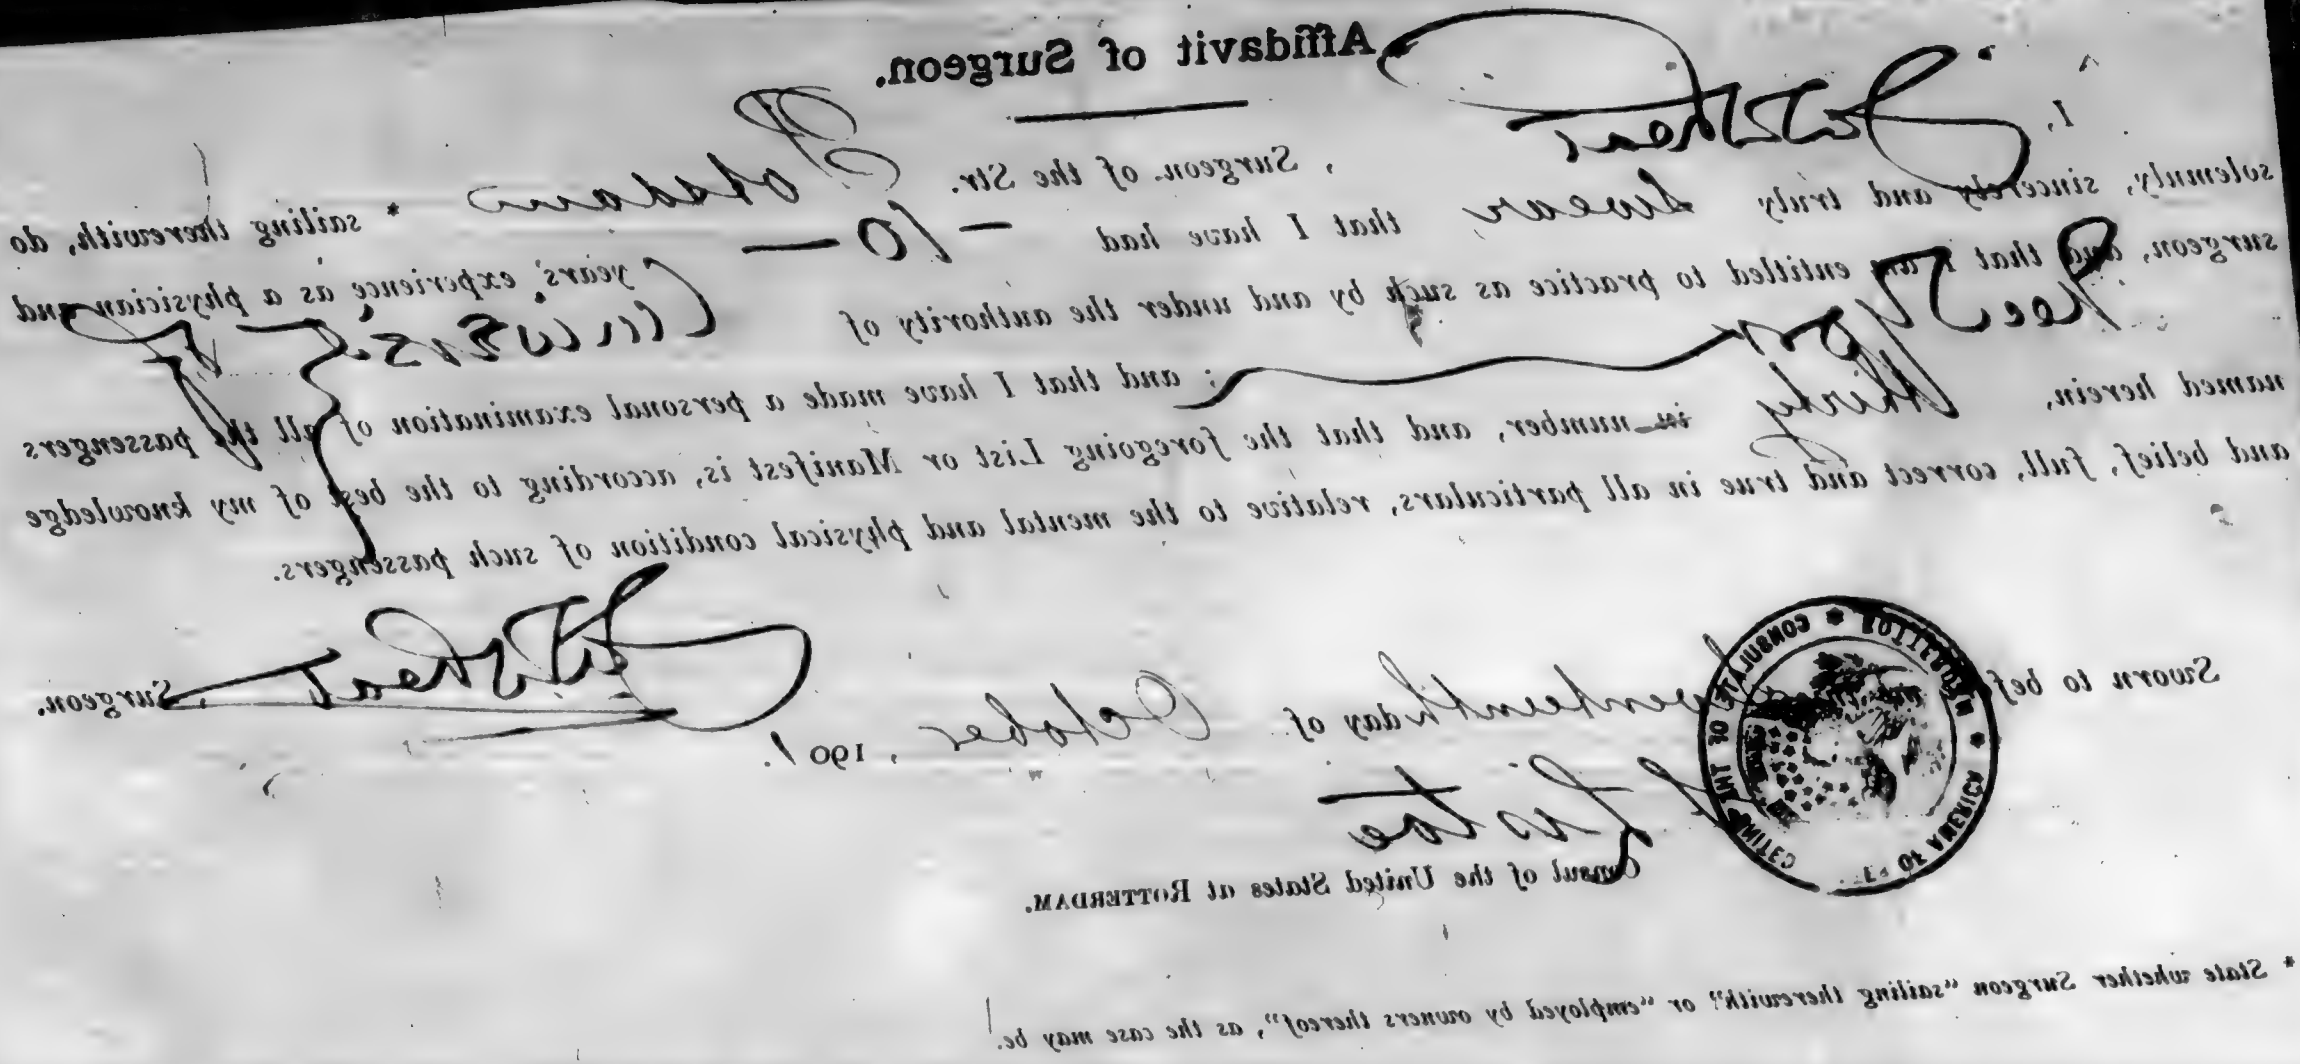 Affidavit of Surgeon.
I, , Surgeon of the Str. Potsdam * sailing therewith, do,
solemnly, sincerely and truly swear that I have had – 10 – years' experience as a physician and
surgeon, and that I am entitled to practice as such by and under the authority of
; and that I have made a personal examination of all the passengers
named herein, thirty in number, and that the foregoing List or Manifest is, according to the best of my knowledge
and belief, full, correct and true in all particulars, relative to the mental and physical condition of such passengers.
, Surgeon.
Sworn to seventeenth day of October , 1901.
Listoe
Consul of the United States at ROTTERDAM.
CONSULATE OF THE UNITED OF AMERICA * ROTTERDAM *
* State whether Surgeon “sailing therewith” or “employed by owners thereof”, as the case may be.